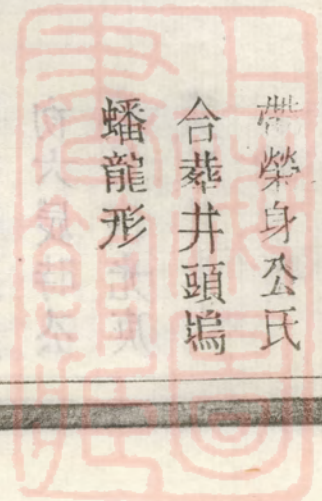 帶榮身公氏
合葬井頭塢
蟠龍形